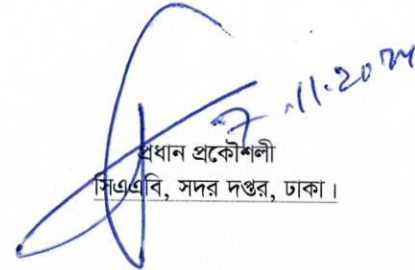 7.11.2024
প্রধান প্রকৌশলী
সিএএবি, সদর দপ্তর, ঢাকা।